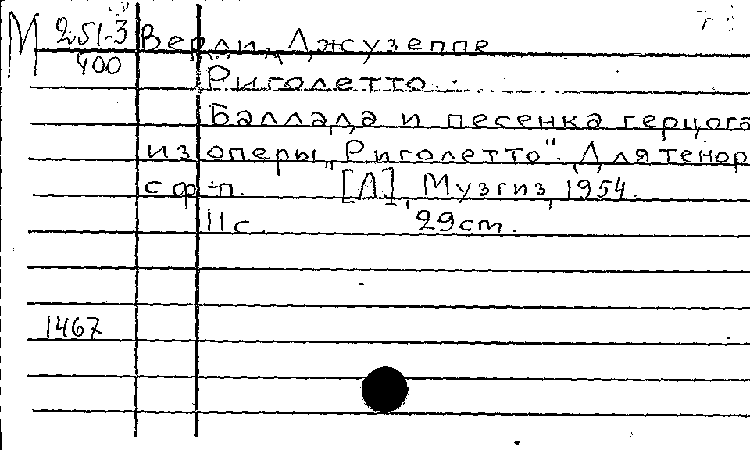 М 2.51-3 Верди, Джузеппе
400 Риголетто.
Баллада и песенка герцога
из оперы „Риголетто". Для тенор
с ф-п. [Л], Музгиз, 1954.
11 с. 29 cm.
1467